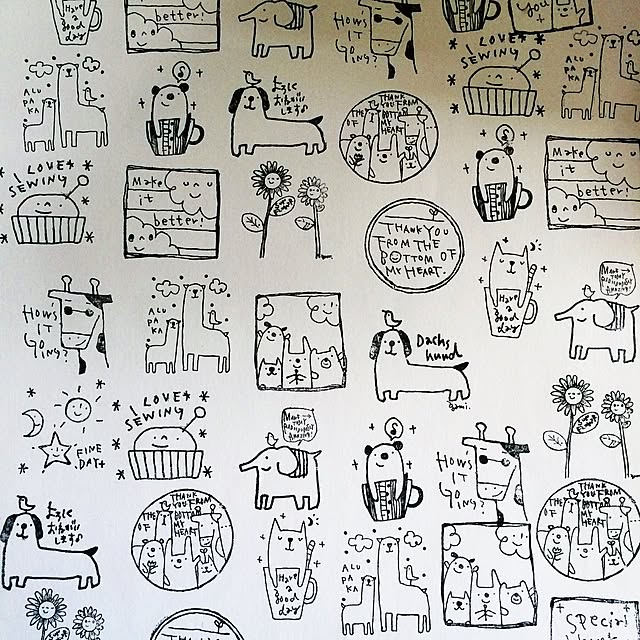 Have
a
good
day
better!
HOW'S
IT
GOING?
you
I LOVE
SEWING
ALU
PA
KA
よろしく
おねがい
します♪
THANK
YOU FROM
THE BOTTOM
OF MY
HEART
ALU
PA
KA
I LOVE
SEWING
Make
it
better!
THANK YOU
FROM THE
BOTTOM OF
MY HEART.
Make
it
better!
Have
a
good
day
HOW'S
IT
GOING?
ALU
PA
KA
Dachs
hund
I LOVE
SEWING
FINE
DAY
HOW'S
IT
GOING?
よろしく
おねがい
します♪
THANK
YOU FROM
THE BOTTOM
OF MY
HEART
Have
a
good
day
ALU
PA
KA
THANK
YOU FROM
THE BOTTOM
OF MY
HEART
Special